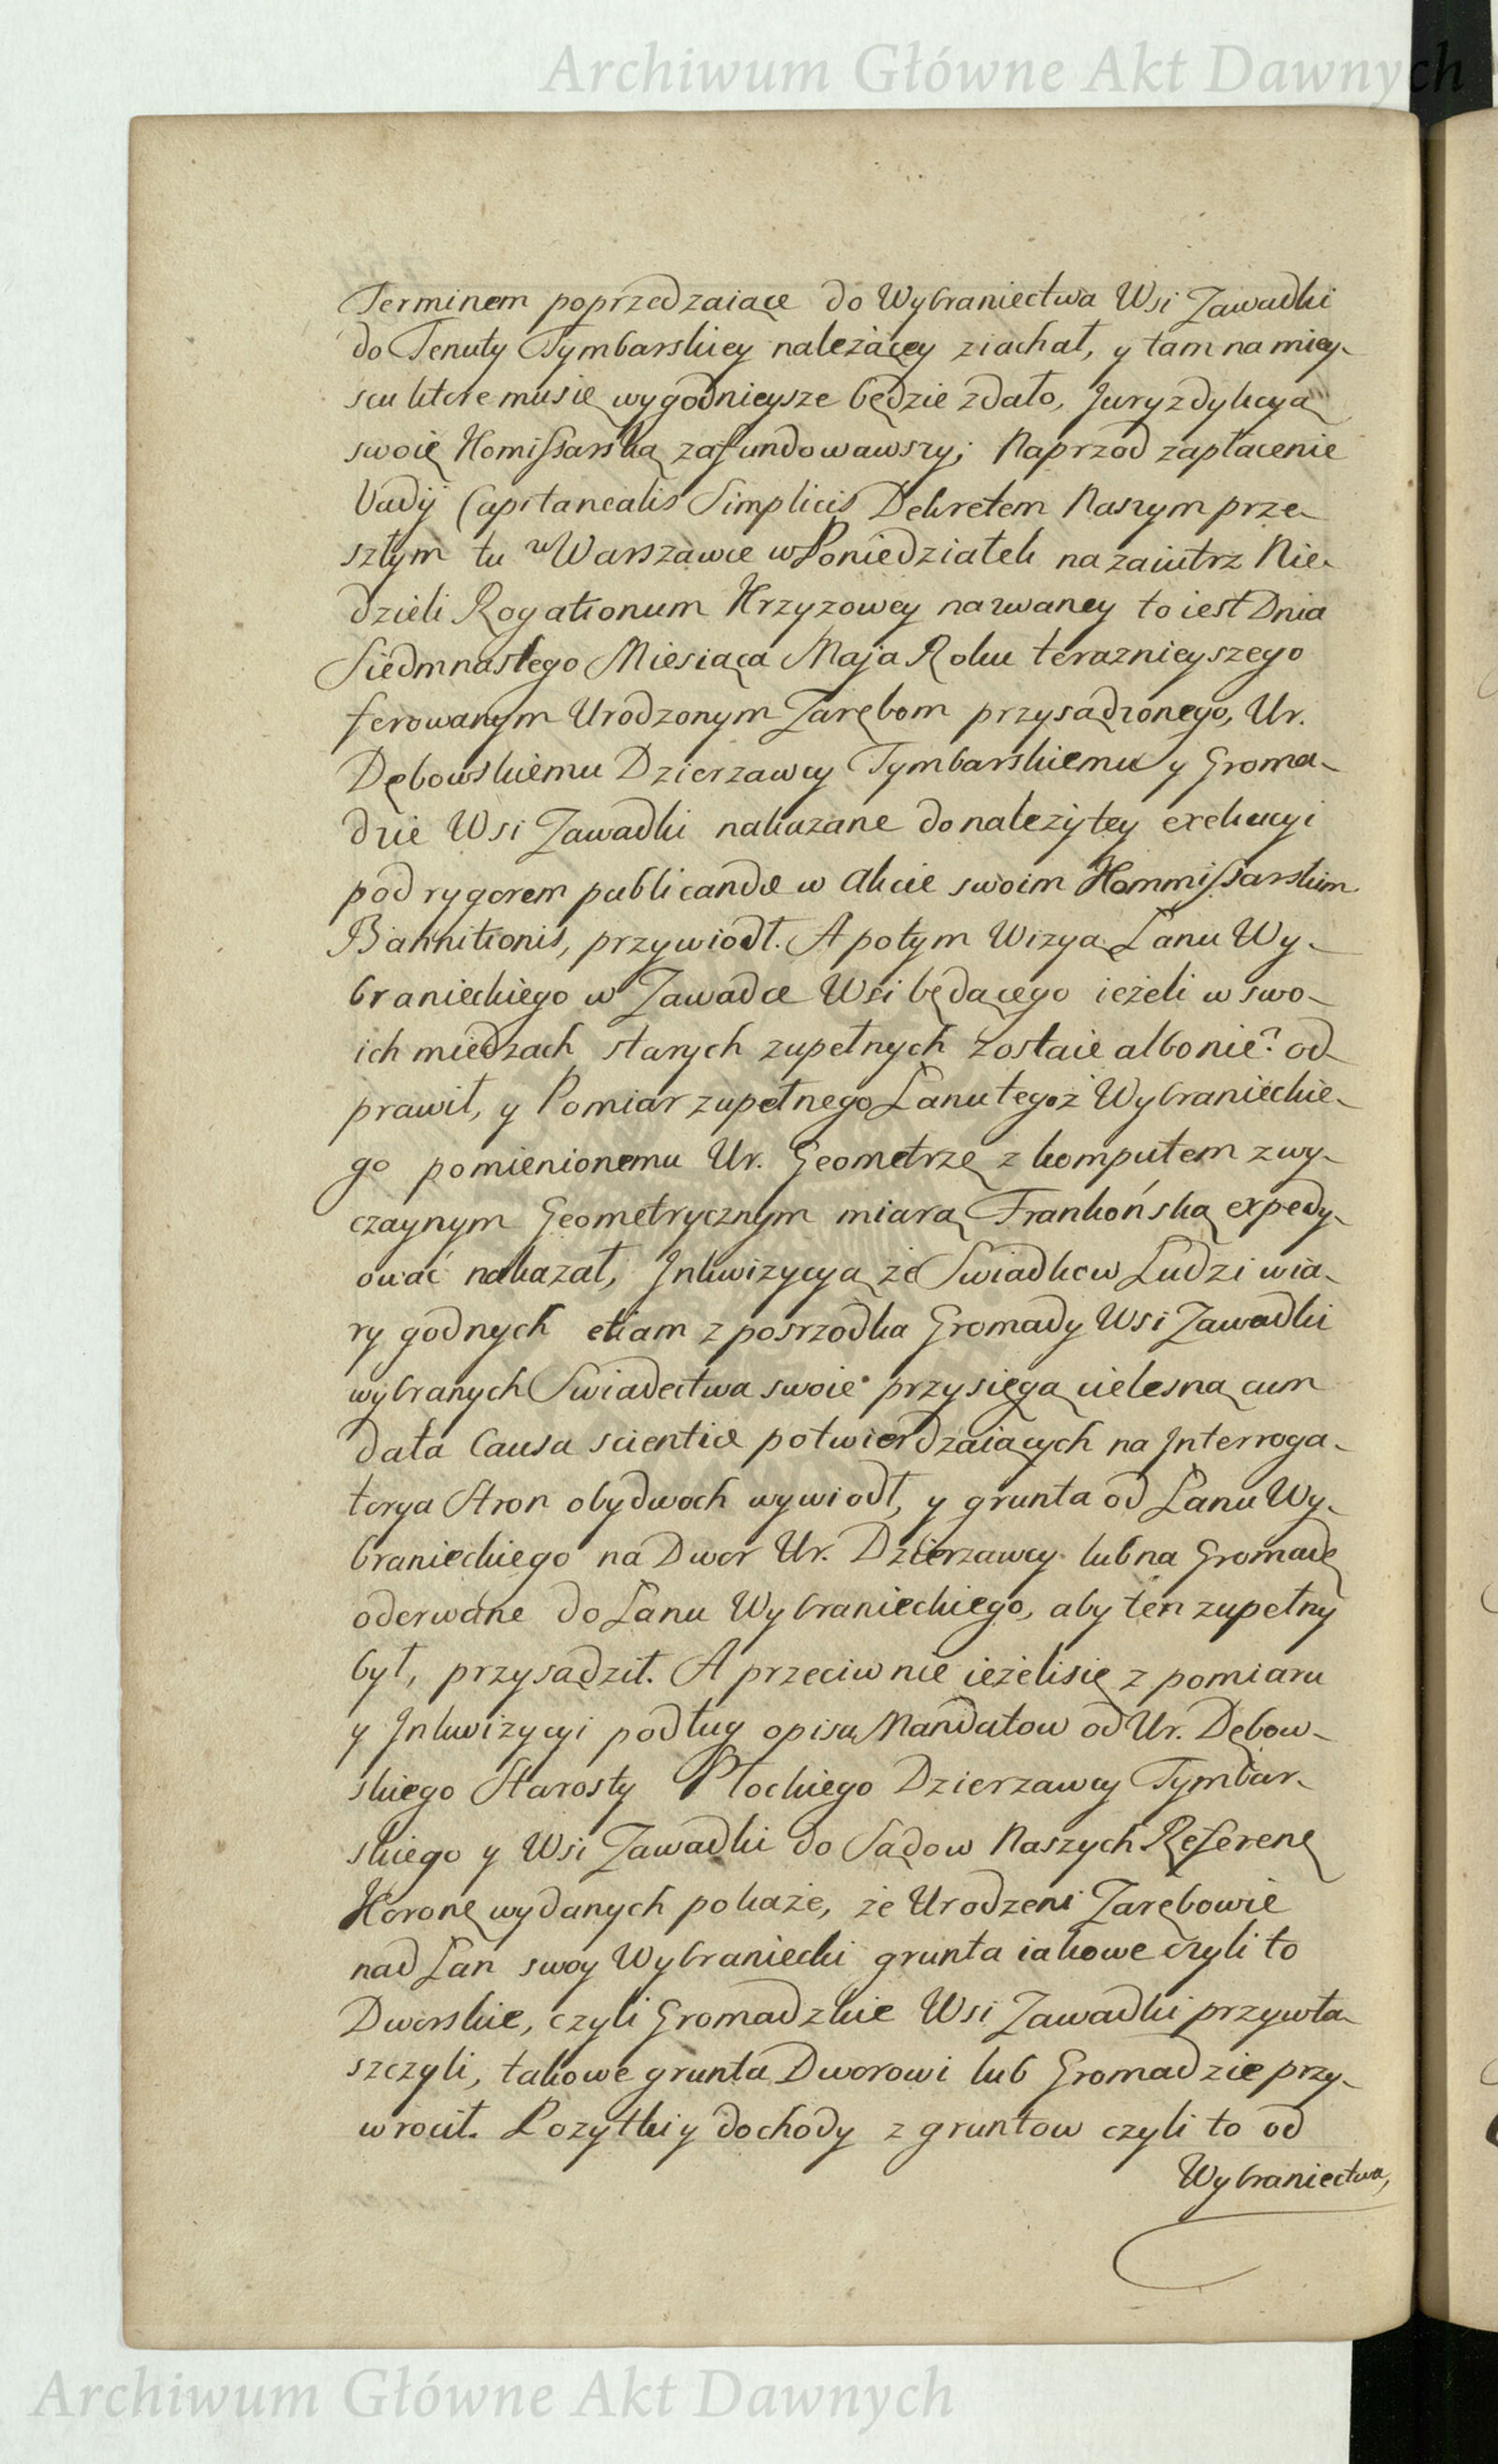 Archiwum Główne Akt Dawnych
Terminem poprzedzaiące do Wybraniectwa Wsi Zawadki
do Tenuty Tymbarskiey należącey ziachał, y tam na miey-
scu ktore mu się wygodnieysze będzie zdało, Juryzdykcyą
swoię Komissarską zafundowawszy; Naprzod zapłacenie
Vadij Capitanealis Simplicis Dekretem Naszym prze-
szłym tu w Warszawie w Poniedziałek nazaiutrz Nie-
dzieli Rogationum Krzyzowey nazwaney to iest Dnia
Siedmnastego Miesiąca Maja Roku teraznieyszego
ferowanym Urodzonym Zarębom przysądzonego, Ur.
Dębowskiemu Dzierzawcy Tymbarskiemu y Groma-
dzie Wsi Zawadki nakazane do nalezytey exekucyi
pod rygorem publicandæ w Akcie swoim Kommissarskim
Bannitionis, przywiodł. A potym Wizyą Łanu Wy-
branieckiego w Zawadce Wsi będącego ieżeli w swo-
ich miedzach starych zupełnych zostaie albo nie? od-
prawił, y Pomiar zupełnego Łanu tegoż Wybranieckie-
go pomienionemu Ur. Geometrze z komputem zwy-
czaynym Geometrycznym miarą Frankońską expedy-
ować nakazał, Inkwizycyą ze Swiadkow Ludzi wia-
ry godnych etiam z posrzodka Gromady Wsi Zawadki
wybranych Swiadectwa swoie przysięgą cielesną cum
data Causa scientiæ potwierdzaiących na Interroga-
torya Stron obydwoch wywiodł, y grunta od Łanu Wy-
branieckiego na Dwor Ur. Dzierzawcy lub na Gromadę
oderwane do Łanu Wybranieckiego, aby ten zupełny
był, przysądził. A przeciwnie ieżeli się z pomiaru
y Inkwizycyi podług opisu Mandatow od Ur. Dębow-
skiego Starosty Płockiego Dzierzawcy Tymbar-
skiego y Wsi Zawadki do Sądow Naszych Referen
Koron wydanych pokaże, że Urodzeni Zarębowie
nad Łan swoy Wybraniecki grunta iakowe czyli to
Dworskie, czyli Gromadzkie Wsi Zawadki przywła-
szczyli, takowe grunta Dworowi lub Gromadzie przy-
wrocił. Pozytki y dochody z gruntow czyli to od
Wybraniectwa,
Archiwum Główne Akt Dawnych